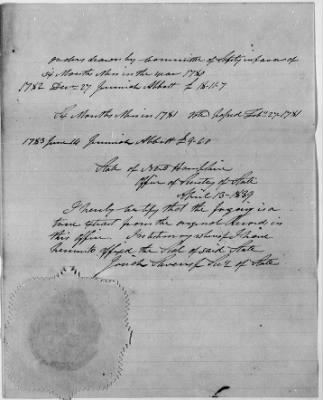 orders drawn by Committee of Safety in favor of
Months Men in the year 1780
1782 Decr 27 Jeremiah Abbott £ 18-11-7
Months Men in 1781 1781
1783 June 14 Jeremiah Abbott £
State of New Hampshire
Office of Secretary of State
April 13-1839
I hereby certify that the foregoing is a
true extract from the original Record in
this office. In testimony whereof I have
hereunto affixed the Seal of said State
Josiah Stevens Jr Secy of State